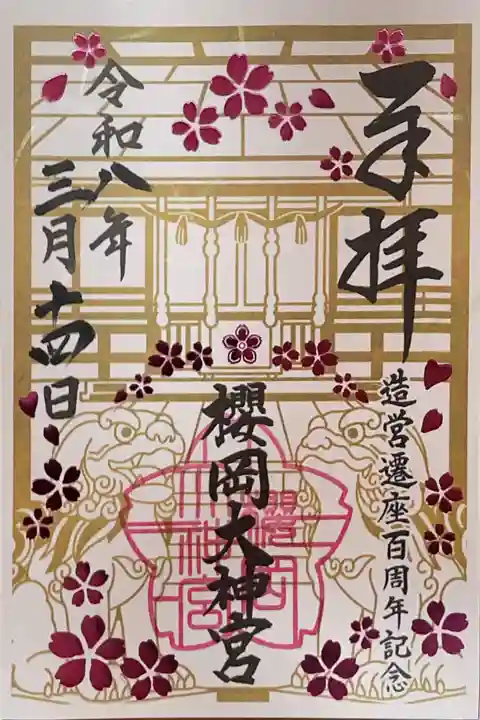 奉拝
造営遷座百周年記念
櫻岡大神宮
櫻岡大神宮
令和八年
三月十四日